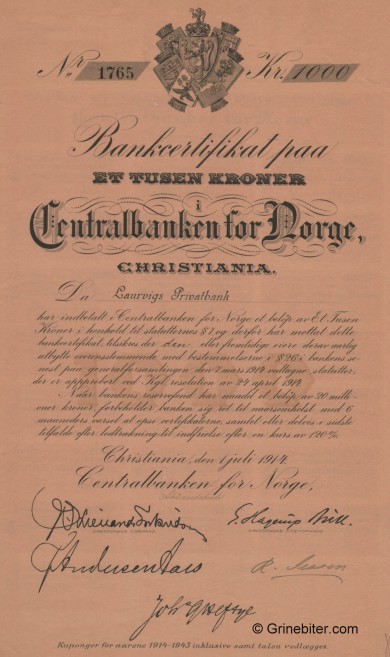 Nr 1765 Kr. 1000
Bankcertifikat paa
ET TUSEN KRONER
i
Centralbanken for Norge,
CHRISTIANIA.
Da Laurvigs Privatbank
har indbetalt i Centralbanken for Norge et beløp av Et Tusen
Kroner i henhold til statutternes § 7 og derfor har mottat dette
bankcertifikat, tilsikres der den eller fremtidige eiere derav aarlig
utbytte overensstemmende med bestemmelserne i § 26 i bankens
senest paa generalforsamlingen den 7 mars 1914 vedtagne statutter,
der er approbert ved Kgl. resolution av 24 april 1914.
Naar bankens reservefond har naadd et beløp av 20 milli-
oner kroner, forbeholder banken sig ret til naarsomhelst med 6
maaneders varsel at opsi certifikaterne, samlet eller delvis, i sidste
tilfælde efter lodtrækning til indfrielse efter en kurs av 120%.
Christiania, den 1 juli 1914.
Centralbanken for Norge,
Kuponger for aarene 1914-1943 inklusive samt talon vedlægges.
© Grinebiter.com